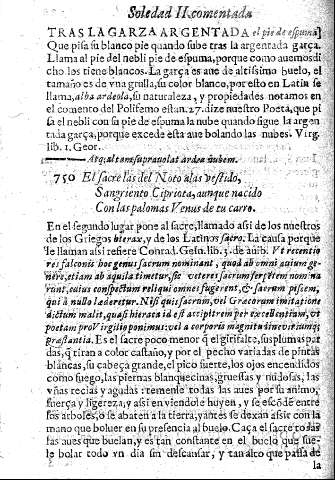 Soledad II. comentada
TRAS LA GARZA ARGENTADA el pie de espuma]
Que pisa su blanco pie quando sube tras la argentada garça.
Llama al pie del nebli pie de espuma, porque como auemos di
cho los tiene blancos. La garça es aue de altissimo buelo, el
tamaño es de vna grulla, su color blanco, por esto en Latin se
llama, alba ardeola, su naturaleza, y propiedades notamos en
el comento del Polifemo estan. 27. dize nuestro Poeta, que pi
sa el nebli con su pie de espuma la nube quando sigue la argen
tada garça, porque excede esta aue bolando las nubes. Virg.
lib. 1. Geor.
Atq; altam supra volat ardea nubem.
750 El sacre las del Noto alas vestido,
Sangriento Cipriota, aunque nacido
Con las palomas Venus de tu carro.
En el segundo lugar pone al sacre, llamado assi de los nuestros
de los Griegos hierax, y de los Latinos sacro. La causa porque
le llaman assi refiere Conrad. Gesn. lib. 3. de auib. Vt recentio
res falconis hoc genus sacrum nominant, quod ab omni auium ge-
nere, etiam ab aquila timetur, sic veteres sacrum
runt, cuius conspectum reliqui omnes fugerent, & sacrum piscem,
qui à nullo læderetur. Nisi quis sacrum, vel Græcorum imitatione
dictum malit, quasi hieraca id est accipitrem per excellentiam, vt
poetam pro Virgilio ponimus: vel a corporis magnitudine viriumq;
præstantia. Es el sacre poco menor q̃ el girifalte, sus plumas par
das, q̃ tiran a color castaño, y por el pecho variadas de pintas
blancas, su cabeça grande, el pico fuerte, los ojos encendidos
como fuego, las piernas blanquecinas, gruessas y nudosas, las
vñas recias y agudas: temenle todas las aues por su animo,
fuerça y ligereza, y assi en viendole huyen, y se escõdẽ entre
los arboles, o se abaten a la tierra, y antes se dexan assir con la
mano que boluer en su presencia al buelo. Caça el sacre todas
las aues que buelan, y es tan constante en el buelo que sue-
le bolar todo vn dia sin descansar, y tan alto que passa de
la